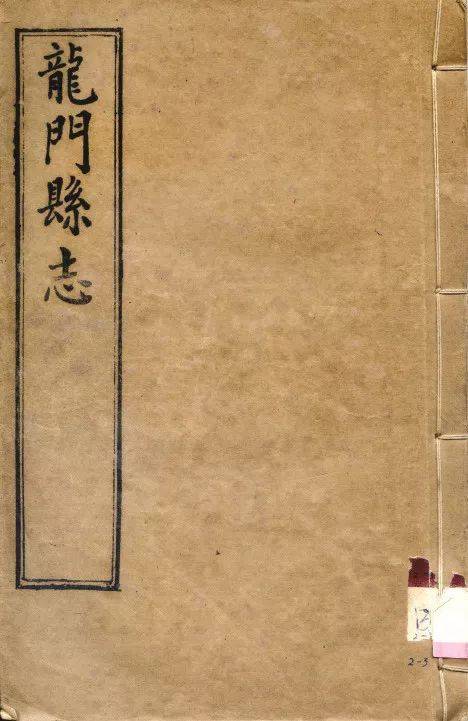 龍門縣志
2-3